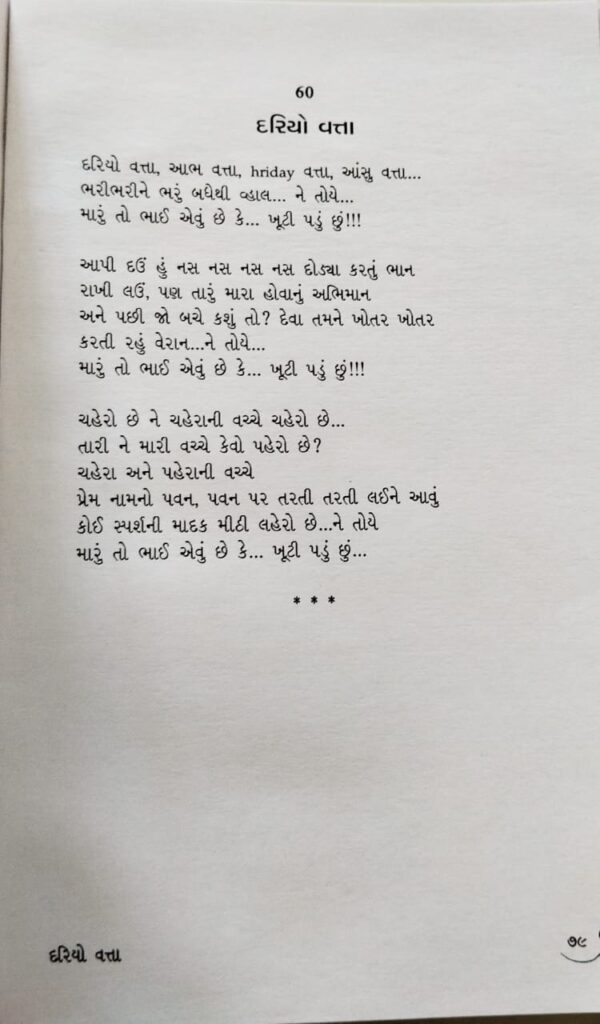 60
દરિયો વત્તા
દરિયો વત્તા, આભ વત્તા, hriday વત્તા, આંસુ વત્તા...
ભરીભરીને ભરું બધેથી વ્હાલ... ને તોયે...
મારું તો ભાઈ એવું છે કે... ખૂટી પડું છું!!!
આપી દઉં હું નસ નસ નસ નસ દોડ્યા કરતું ભાન
રાખી લઉં, પણ તારું મારા હોવાનું અભિમાન
અને પછી જો બચે કશું તો? દેવા તમને ખોતર ખોતર
કરતી રહું વેરાન...ને તોયે...
મારું તો ભાઈ એવું છે કે... ખૂટી પડું છું!!!
ચહેરો છે ને ચહેરાની વચ્ચે ચહેરો છે...
તારી ને મારી વચ્ચે કેવો પહેરો છે?
ચહેરા અને પહેરાની વચ્ચે
પ્રેમ નામનો પવન, પવન પર તરતી તરતી લઈને આવું
કોઈ સ્પર્શની માદક મીઠી લહેરો છે...ને તોયે
મારું તો ભાઈ એવું છે કે... ખૂટી પડું છું...
* * *
દરિયો વત્તા
૭૯